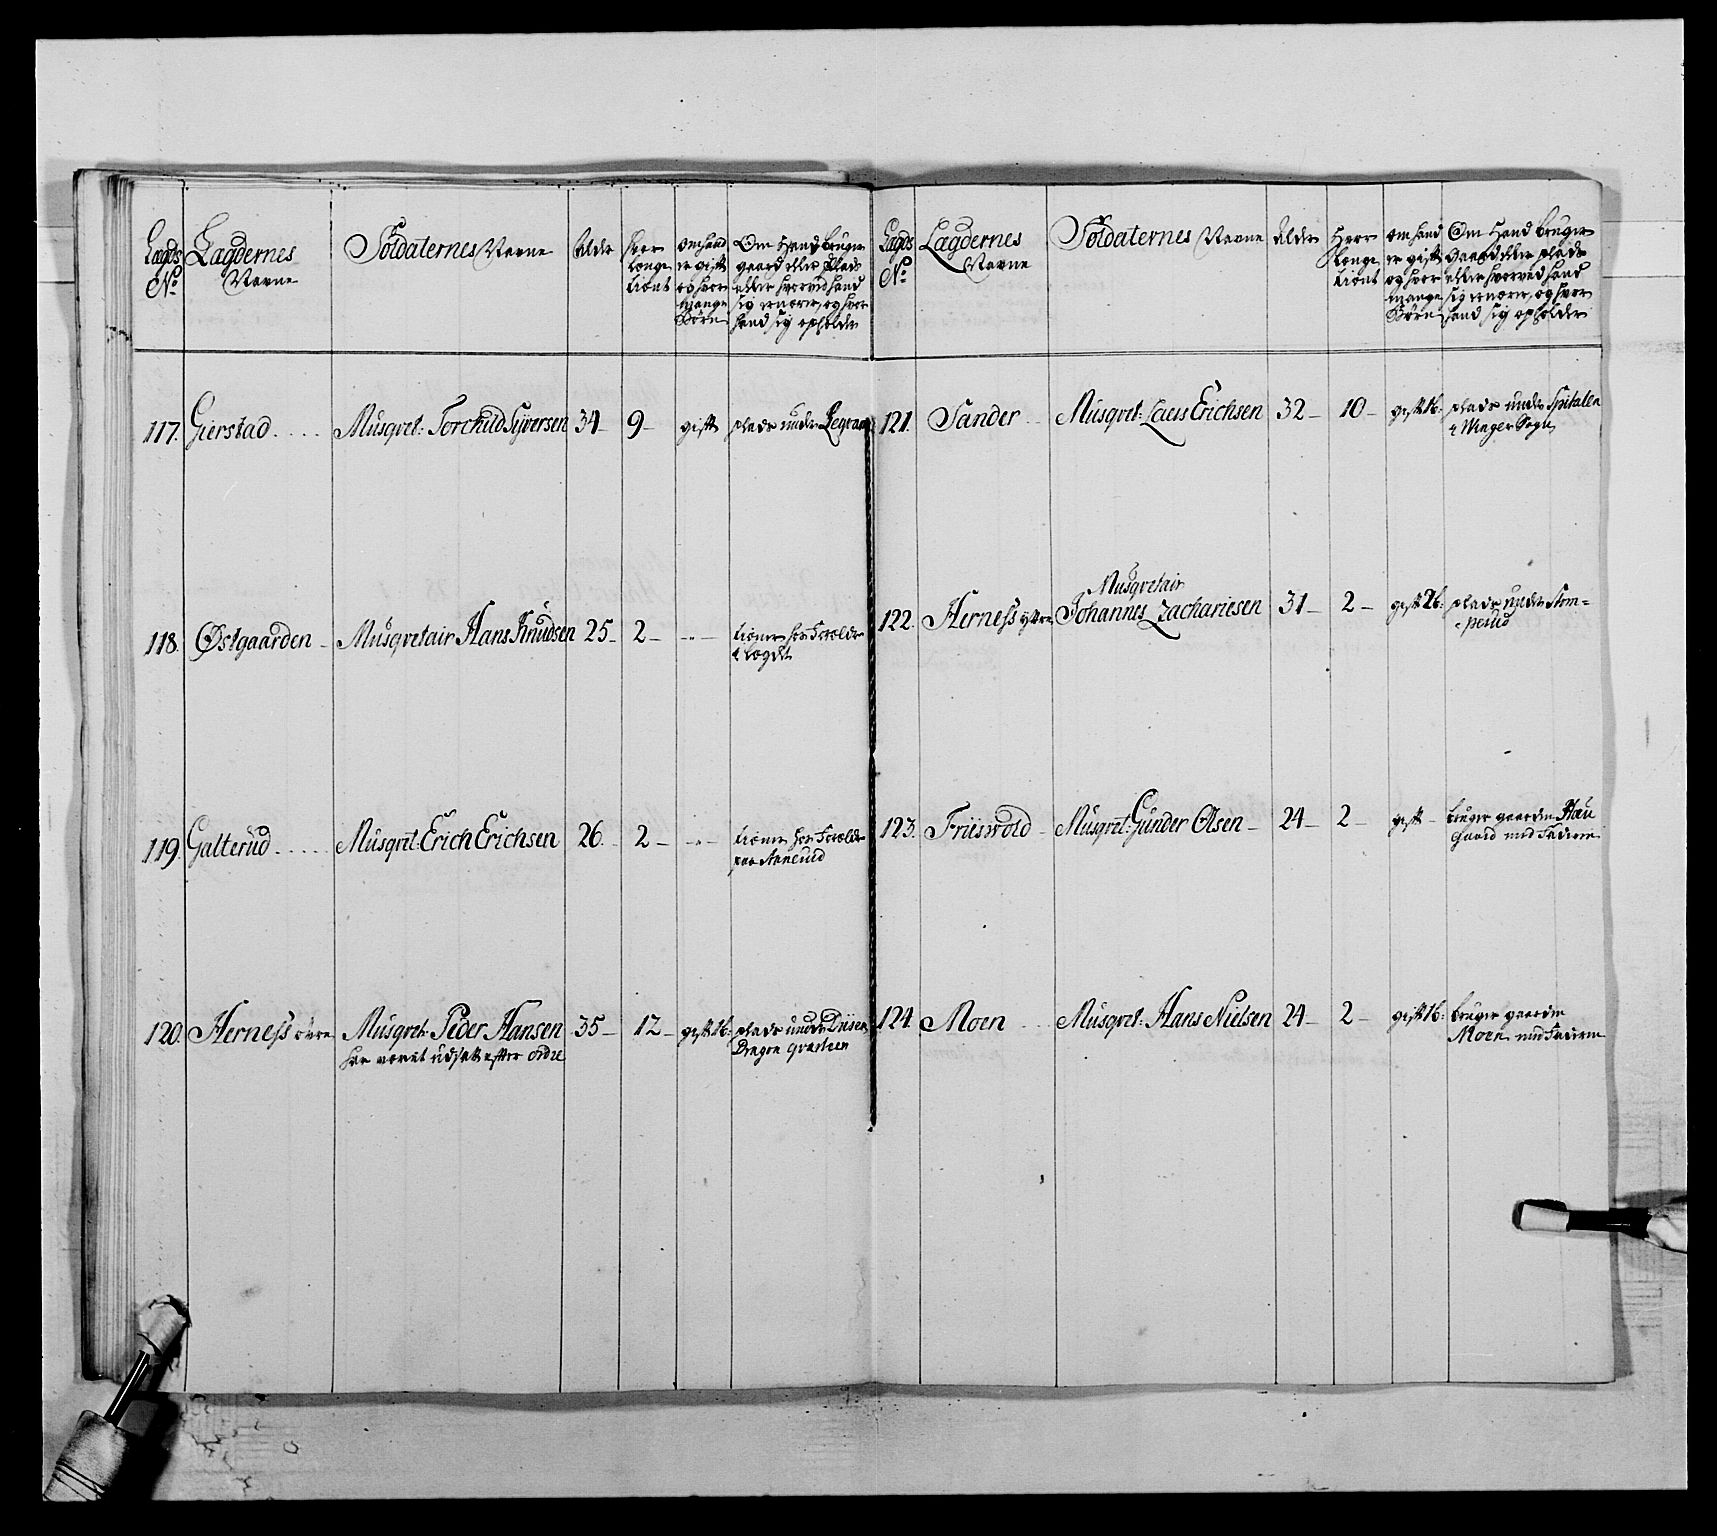 Lægds Lægdernes Soldaternes Navne Alder hvor om hand Om Hand bruger
No Navne længe er gift gaard eller Plads
tiønt og hvor eller hvorved hand
mange sig ernærer, og hvor
Børn hand sig opholder
117. Gierstad .... Musqvet: Torchild Syversen 34 – 9 – gift plads under
118. Østgaarden – Musqvetair Hans Knudsen 25 – 2 – ..– tiener hos Forældre
i Lægdet
119. Galterud ..... Musqvt: Erich Erichsen 26. – 2 – ..– tiener hos Forældre
paa
120. Herness øvre Musqvet: Peder Hansen 35 – 12 – gift 1b: plads under
har været udsatt efter ordre Dragon qvarteer
Lægds Lægdernes Soldaternes Navne Alder Hvor om hand Om Hand bruger
No Navne længe er gift Gaard eller plads
tiønt og hvor eller hvorved hand
mange sig ernærer, og hvor
Børn hand sig opholder
121. Sander .. Musqvet: Lars Erichsen 32 – 10 – gift 1b: plads under Spitalen
i Winger Sogn
122. Herness yttre Musqvetair
Johannes Zachariesen 31 – 2 – gift 2b: plads under Stom=
=perud
123. Friiswold – Musqvet: Gunder Olsen – 24 – 2 – gift – bruger gaarden
med Faderen
124. Moen ... Musqvet: Hans Nielsen 24 – 2 – gift 1b: bruger gaarden
Moen med Faderen